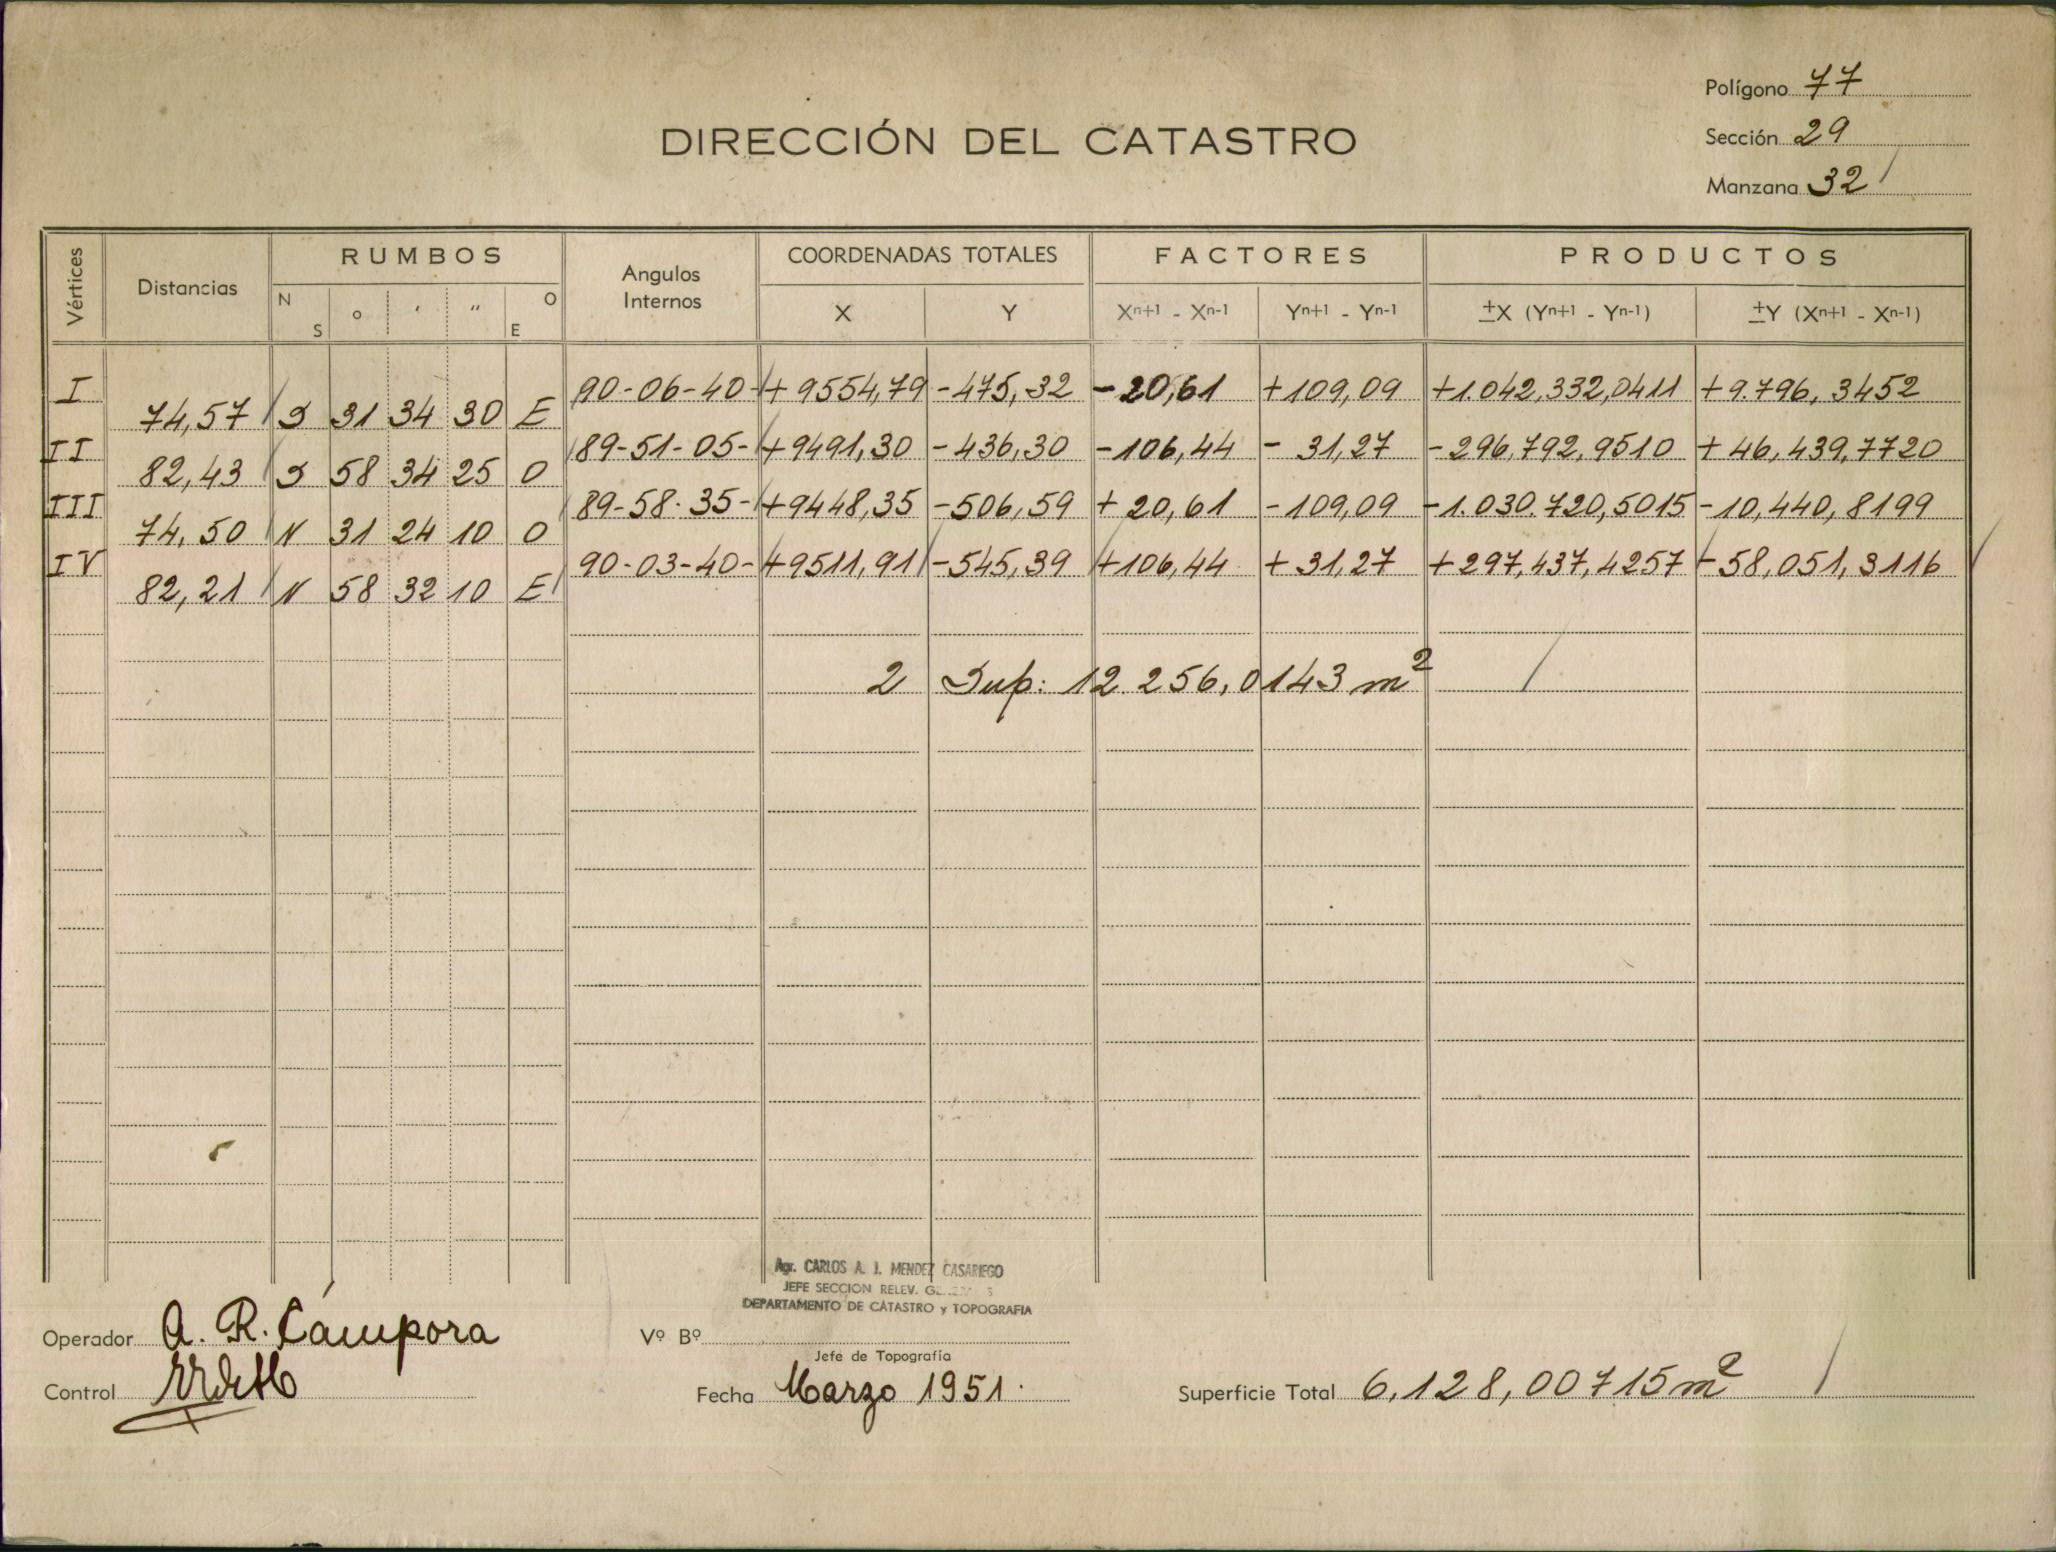 Polígono 77
DIRECCIÓN DEL CATASTRO
Sección 29
Manzana 32
Vértices Distancias RUMBOS Angulos Internos COORDENADAS TOTALES FACTORES PRODUCTOS
N S o ' " O E X Y Xn+1 - Xn-1 Yn+1 - Yn-1 ±X (Yn+1 - Yn-1) ±Y (Xn+1 - Xn-1)
I 90-06-40- +9554,79 -475,32 -20,61 +109,09 +1.042,332,0411 +9.796,3452
74,57 S 31 34 30 E
II 89-51-05- +9491,30 -436,30 -106,44 -31,27 -296,792,9510 +46,439,7720
82,43 S 58 34 25 O
III 89-58-35- +9448,35 -506,59 +20,61 -109,09 -1.030.720,5015 -10,440,8199
74,50 N 31 24 10 O
IV 90-03-40- +9511,91 -545,39 +106,44 +31,27 +297,437,4257 -58,051,3116
82,21 N 58 32 10 E
2 Sup: 12 256,0143 m²
Agr. CARLOS A. J. MENDEZ CASARIEGO
JEFE SECCION RELEV.
DEPARTAMENTO DE CATASTRO y TOPOGRAFIA
Operador A. R. Cámpora
Vº Bº
Jefe de Topografía
Control
Fecha Marzo 1951.
Superficie Total 6,128,00715 m²